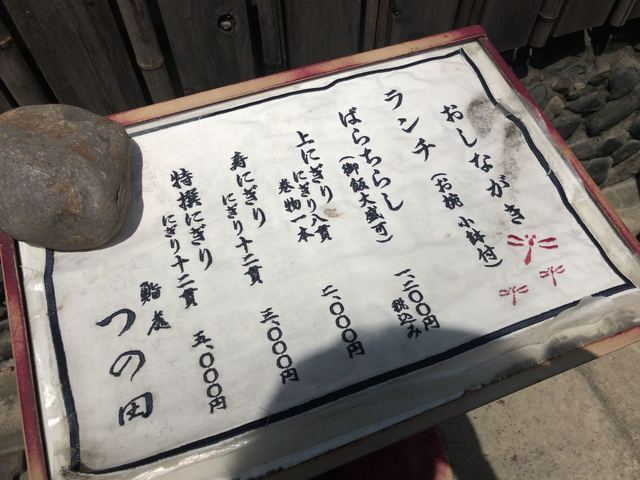 おしながき
ランチ(お椀 小鉢付)
ばらちらし(御飯大盛可)
一、二〇〇円
税込み
上にぎり
にぎり八貫
巻物一本
二、〇〇〇円
寿にぎり
にぎり十二貫
三、〇〇〇円
特撰にぎり
にぎり十二貫
五、〇〇〇円
鮨處
つの田